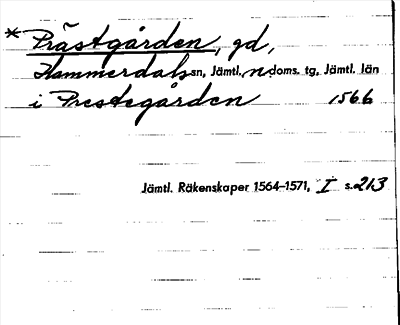 * Prästgården, gd,
Hammerdals sn, Jämtl. n. doms. tg, Jämtl. län
i Prestegården 1566
Jämtl. Räkenskaper 1564–1571, I s. 213